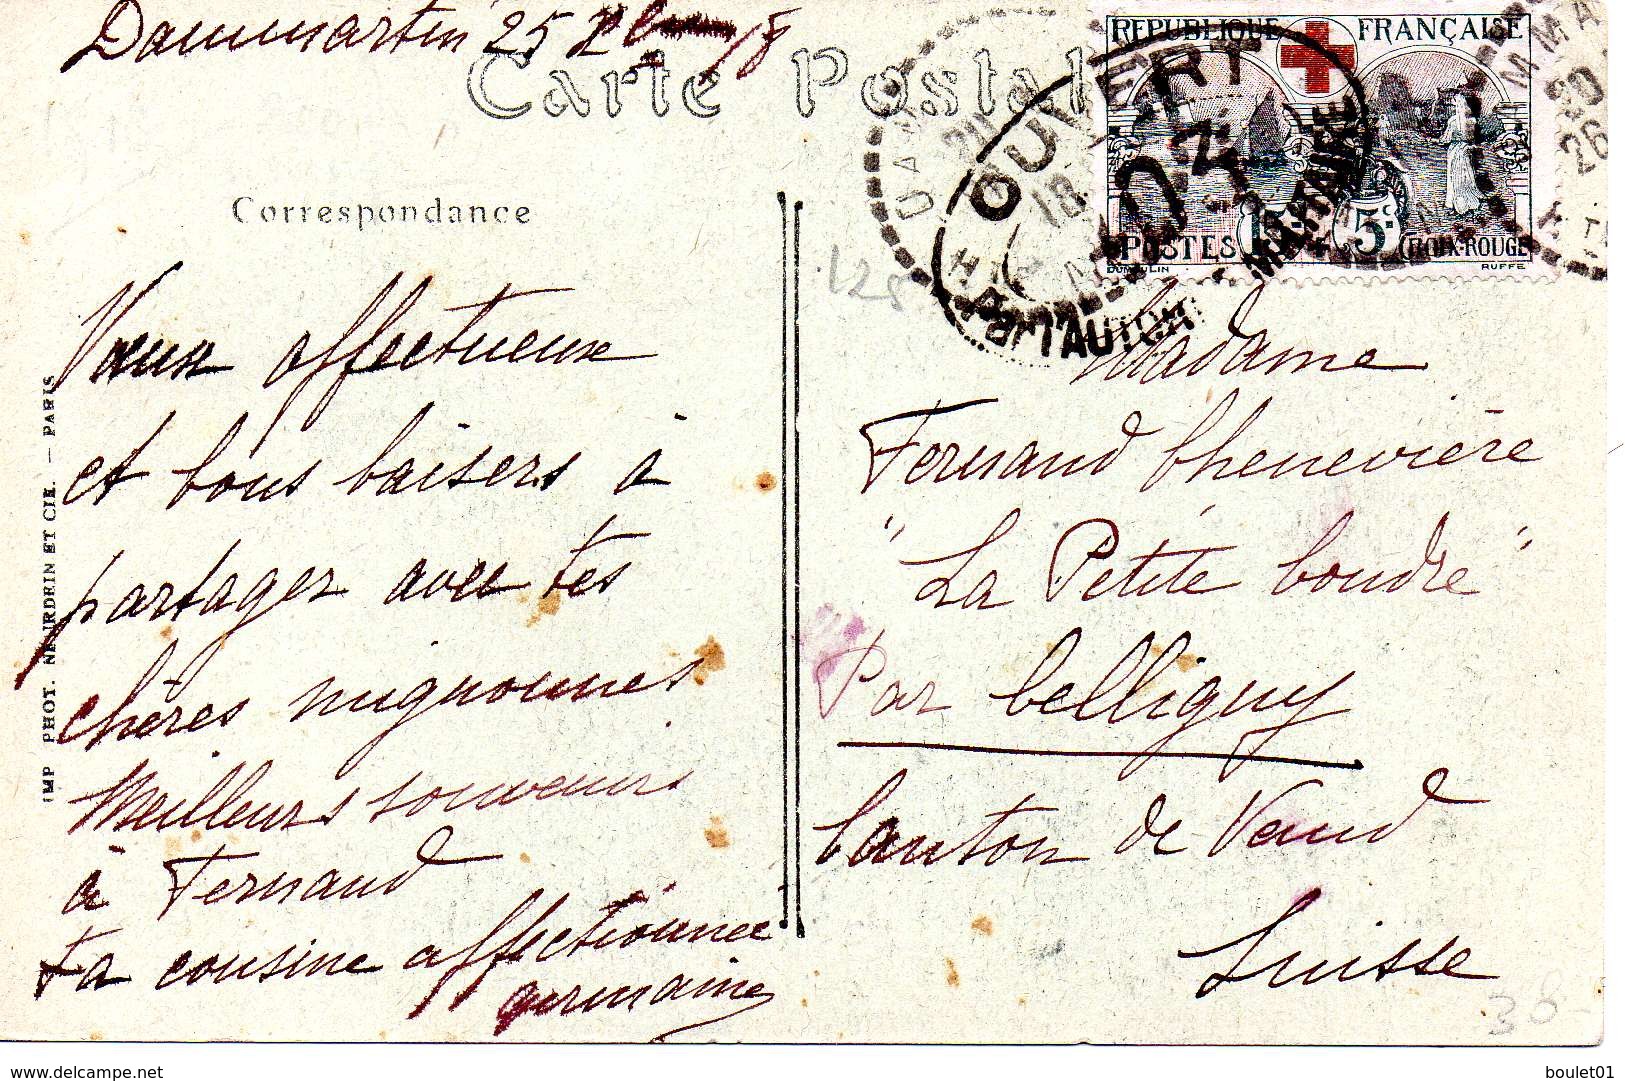 Dammartin 25 Xbre 18
Carte Postale
REPUBLIQUE FRANÇAISE
POSTES 15c + 5c CROIX-ROUGE
DUMOULIN RUFFE
OUVERT
Par l'AUTORITÉ MILITAIRE
Correspondance
125
Vœux affectueux
et bons baisers à
partager avec tes
chères mignonnes
Meilleurs souvenirs
à Fernand
Ta cousine affectionnée
Germaine
IMP PHOT. NEURDEIN ET CIE. — PARIS
Madame
Fernand Chenevière
"La Petite Coudre"
Par Celligny
Canton de Vaud
Suisse
boulet01